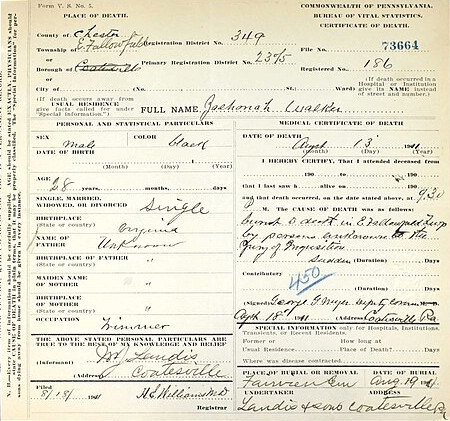 Form V. S. No. 5.
PLACE OF DEATH.
County of Chester
Township of E. Fallowfield
or
Borough of Coatesville
or
City of
Registration District No. 349
Primary Registration District No. 2375
(No. St. Ward)
COMMONWEALTH OF PENNSYLVANIA.
BUREAU OF VITAL STATISTICS.
CERTIFICATE OF DEATH.
File No. 73664
Registered No. 186
(If death occurred in a Hospital or Institution give its NAME instead of street and number.)
(If death occurs away from USUAL RESIDENCE give facts called for under "Special Information".)
FULL NAME Zachariah Walker
PERSONAL AND STATISTICAL PARTICULARS
SEX Male
COLOR black
DATE OF BIRTH
(Month) (Day) (Year)
AGE
28 years, months, days
SINGLE, MARRIED,
WIDOWED, OR DIVORCED Single
BIRTHPLACE
(State or country) Virginia
NAME OF
FATHER Unknown
BIRTHPLACE
OF FATHER
(State or country) "
MAIDEN NAME
OF MOTHER "
BIRTHPLACE
OF MOTHER
(State or country) "
OCCUPATION
THE ABOVE STATED PERSONAL PARTICULARS ARE
TRUE TO THE BEST OF MY KNOWLEDGE AND BELIEF
(Informant) Landis
(Address) Coatesville
Filed
8/18/ 1911 H S Williams M.D
Registrar
MEDICAL CERTIFICATE OF DEATH
DATE OF DEATH
13 1911
(Month) (Day) (Year)
I HEREBY CERTIFY, That I attended deceased from
190 , to 190
that I last saw h alive on 190
and that death occurred, on the date stated above, at 9.30
M. The CAUSE OF DEATH was as follows:
burnt to death in E Fallowfield Twp
by persons unknown to the
Jury of Inquisition
Sudden (Duration) Days
Contributory
450
(Duration) Days
(Signed) George G Myer Deputy Coroner
18 1911 (Address) Coatesville Pa
SPECIAL INFORMATION only for Hospitals, Institutions, Transients, or Recent Residents.
Former or
Usual Residence
How long at
Place of Death? Days
Where was disease contracted
PLACE OF BURIAL OR REMOVAL
Fairview Cem
DATE OF BURIAL
Aug 19 1911
UNDERTAKER
Landis & sons
ADDRESS
Coatesville Pa